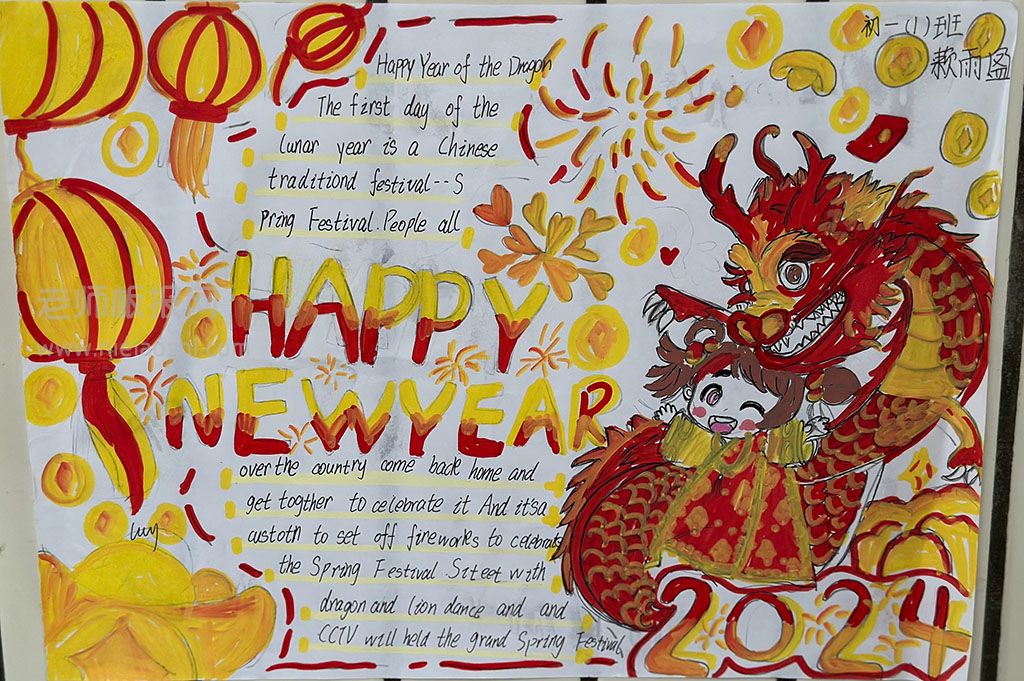 初一(1)班
Happy Year of the Dragon
The first day of the
lunar year is a Chinese
traditiond festival--S
pring Festival.People all
HAPPY
NEWYEAR
over the country come back home and
get togther to celebrate it And itsa
custoth to set off fireworks to celebrate
the Spring Festival.Siteet with
dragon and lion dance and and
CCTV will held the grand Spring Festival
2024